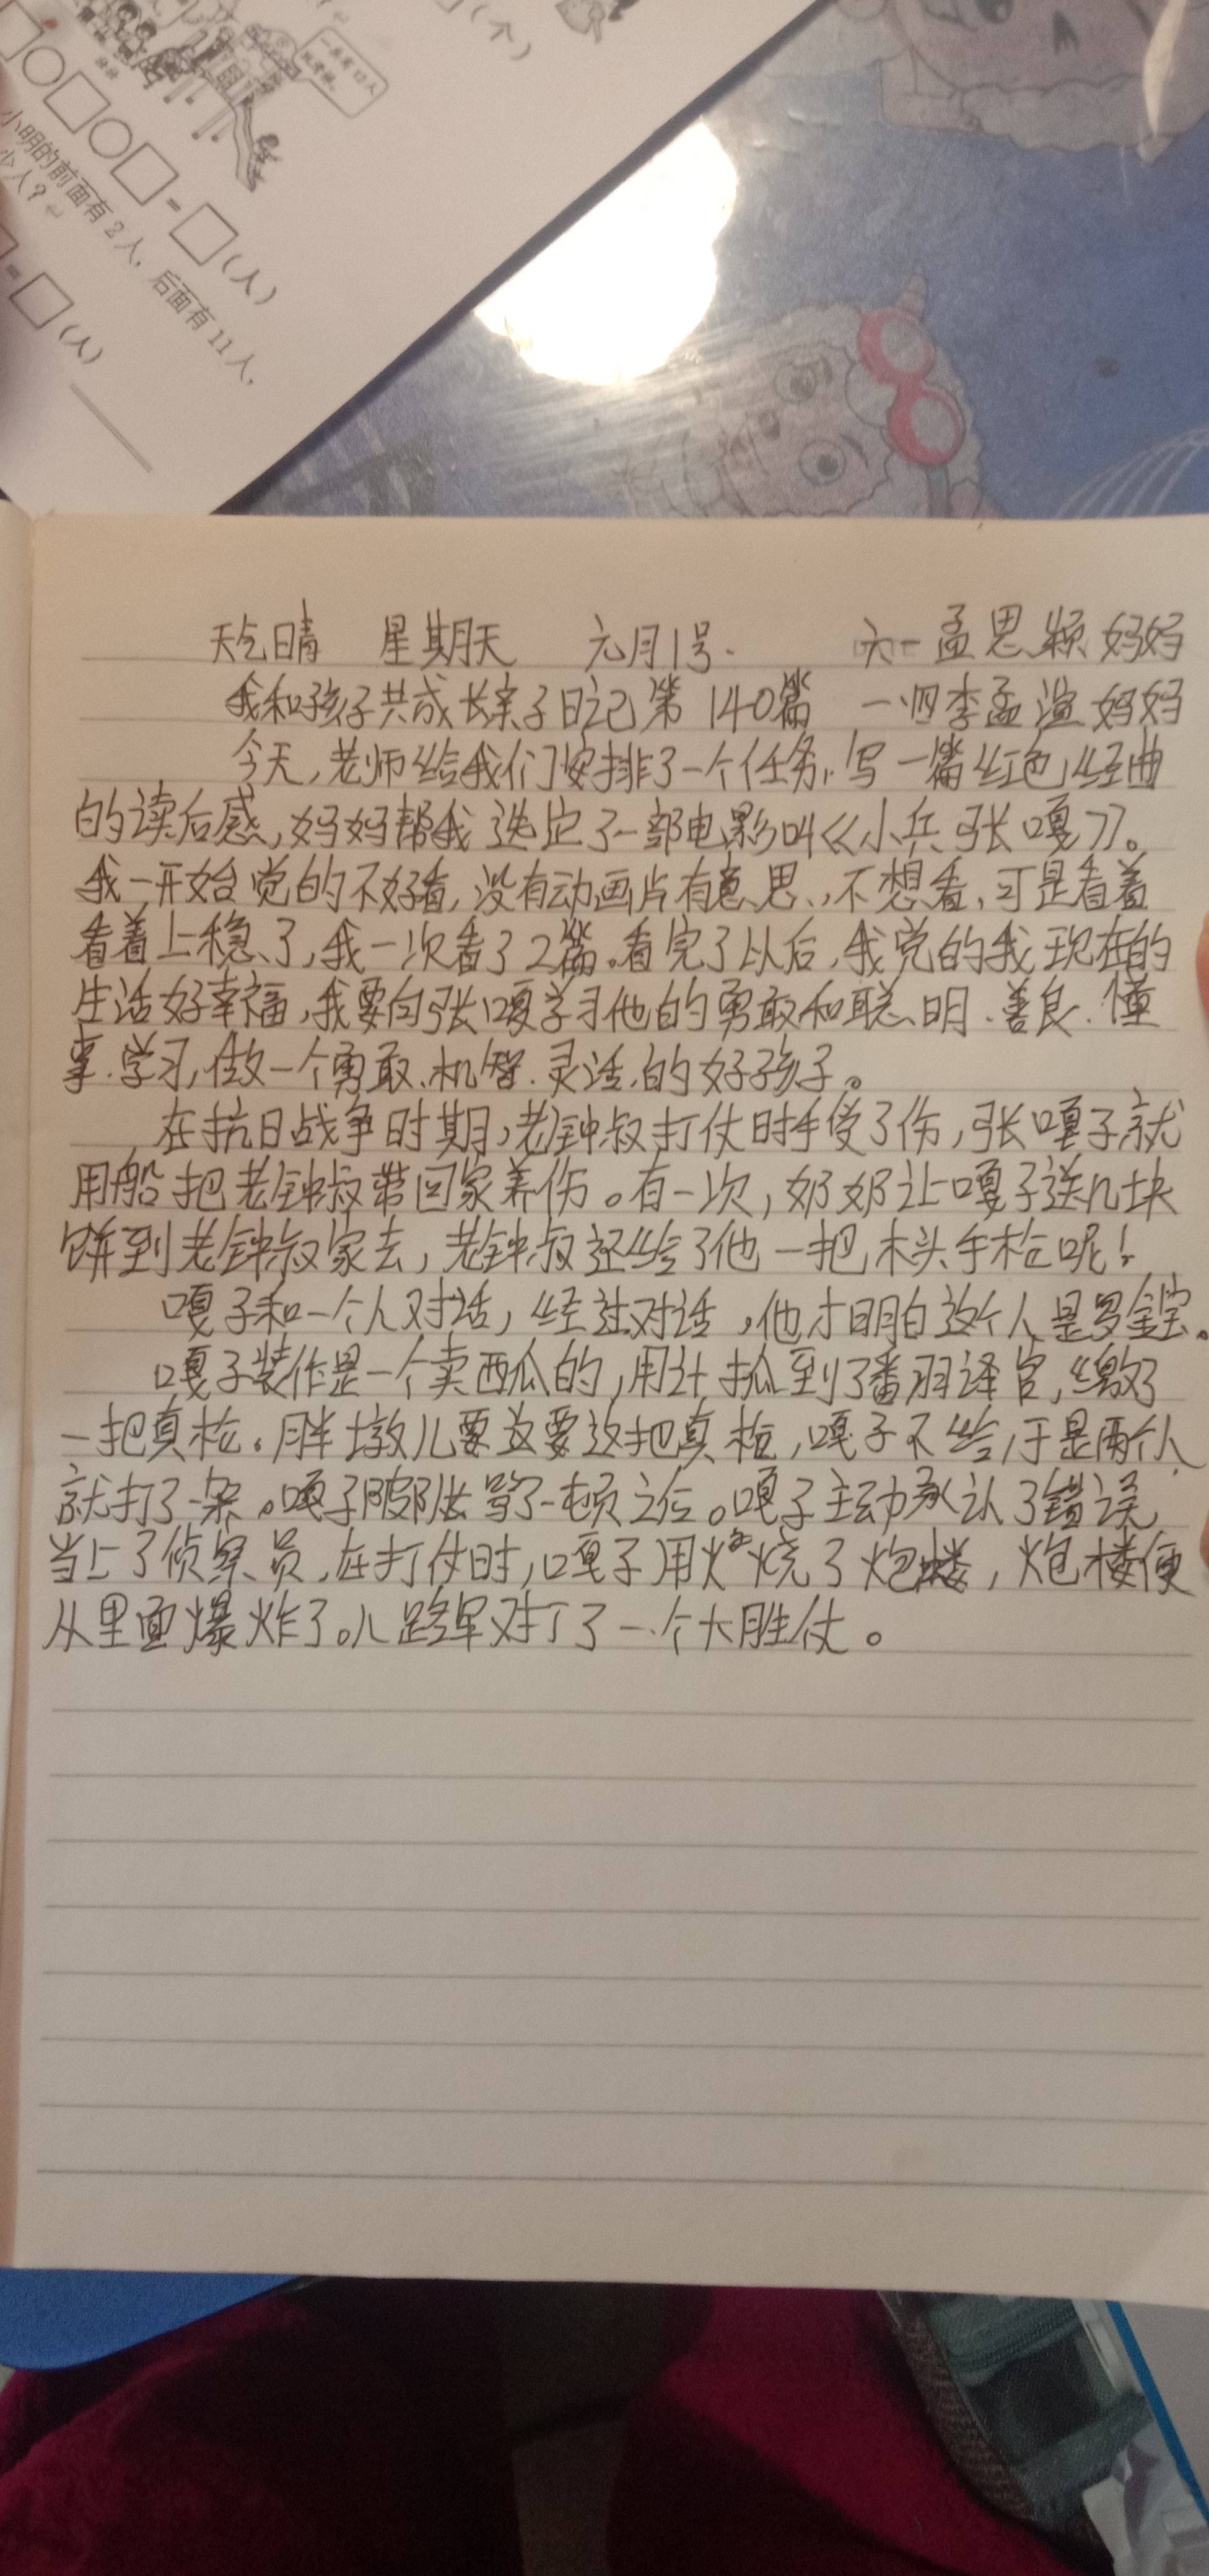 一共有13人
玩滑梯。
(个)
□○□○□=□(人)
小明的前面有2人,后面有11人,
少人?
=□(人)
天气晴 星期天 元月1号. 六一孟思颖妈妈
我和孩子共成长亲子日记第140篇 一四李孟渲妈妈
今天,老师给我们安排了一个任务,写一篇红色经典
的读后感,妈妈帮我选定了一部电影叫《小兵张嘎》。
我一开始觉的不好看,没有动画片有意思,不想看,可是看着
看着上稳了,我一次看了2篇。看完了以后,我觉的我现在的
生活好幸福,我要向张嘎学习他的勇敢和聪明、善良、懂
事、学习,做一个勇敢、机智、灵活、的好孩子。
在抗日战争时期,老钟叔打仗时手受了伤,张嘎子就
用船把老钟叔带回家养伤。有一次,奶奶让嘎子送几块
饼到老钟叔家去,老钟叔还给了他一把木头手枪呢!
嘎子和一个人对话,经过对话,他才明白这个人是罗金宝。
嘎子装作是一个卖西瓜的,用计抓到了番羽译官,缴了
一把真枪。胖墩儿要这要这把真枪,嘎子不给,于是两个人
就打了一架。嘎子被队长骂了一顿之后。嘎子主动承认了错误
当上了侦察员,在打仗时,嘎子用火烧了炮楼,炮楼便
从里面爆炸了。八路军打了一个大胜仗。